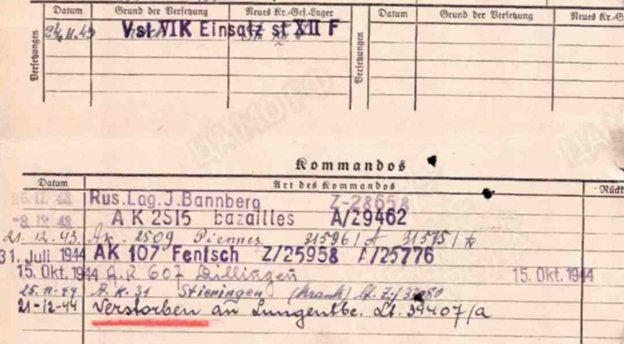 Datum Grund der Versetzung Neues Kr.-Gef.-Lager Datum Grund der Versetzung Neues Kr.-Ge
Versetzungen
24.11.43 Vst VIK Einsatz st XII F
Versetzungen
Kommandos
Datum Art des Kommandos Rückt
26.11.43 Rus.Lag.J.Bannberg Z-28658
-8.12.43 A K 2515 bazailles A/29462
21.12.43. AK. 2509 Piennes 31596/A 31515/
31. Juli 1944 AK 107 Fentsch Z/25958 F/25776
15. Okt. 1944 A.K 607 Dillingen 15. Okt. 1944
25.11.44 A.K. 31 Stieringen (krank) lt. Z/
21-12-44 Verstorben an Lungentbc. Lt. 39407/a